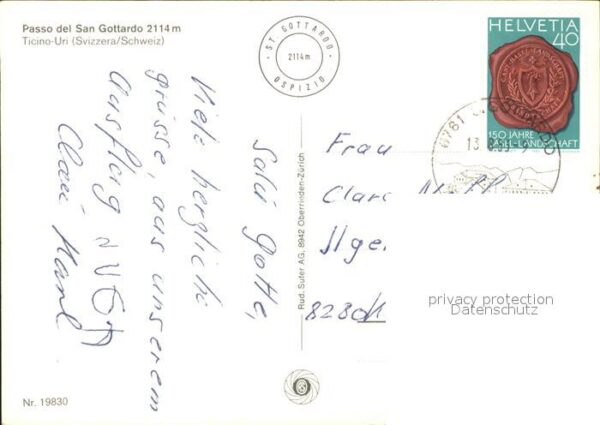 Passo del San Gottardo 2114 m
Ticino-Uri (Svizzera/Schweiz)
ST. GOTTARDO
2114 m
OSPIZIO
HELVETIA
40
150 JAHRE
BASEL-LANDSCHAFT
6761
13
Salü Gotte,
Viele herzliche
Grüsse, aus unserem
Ausflug
Frau
Ilge
8280 K
Rud. Suter AG, 8942 Oberrieden-Zürich
privacy protection
Datenschutz
Nr. 19830